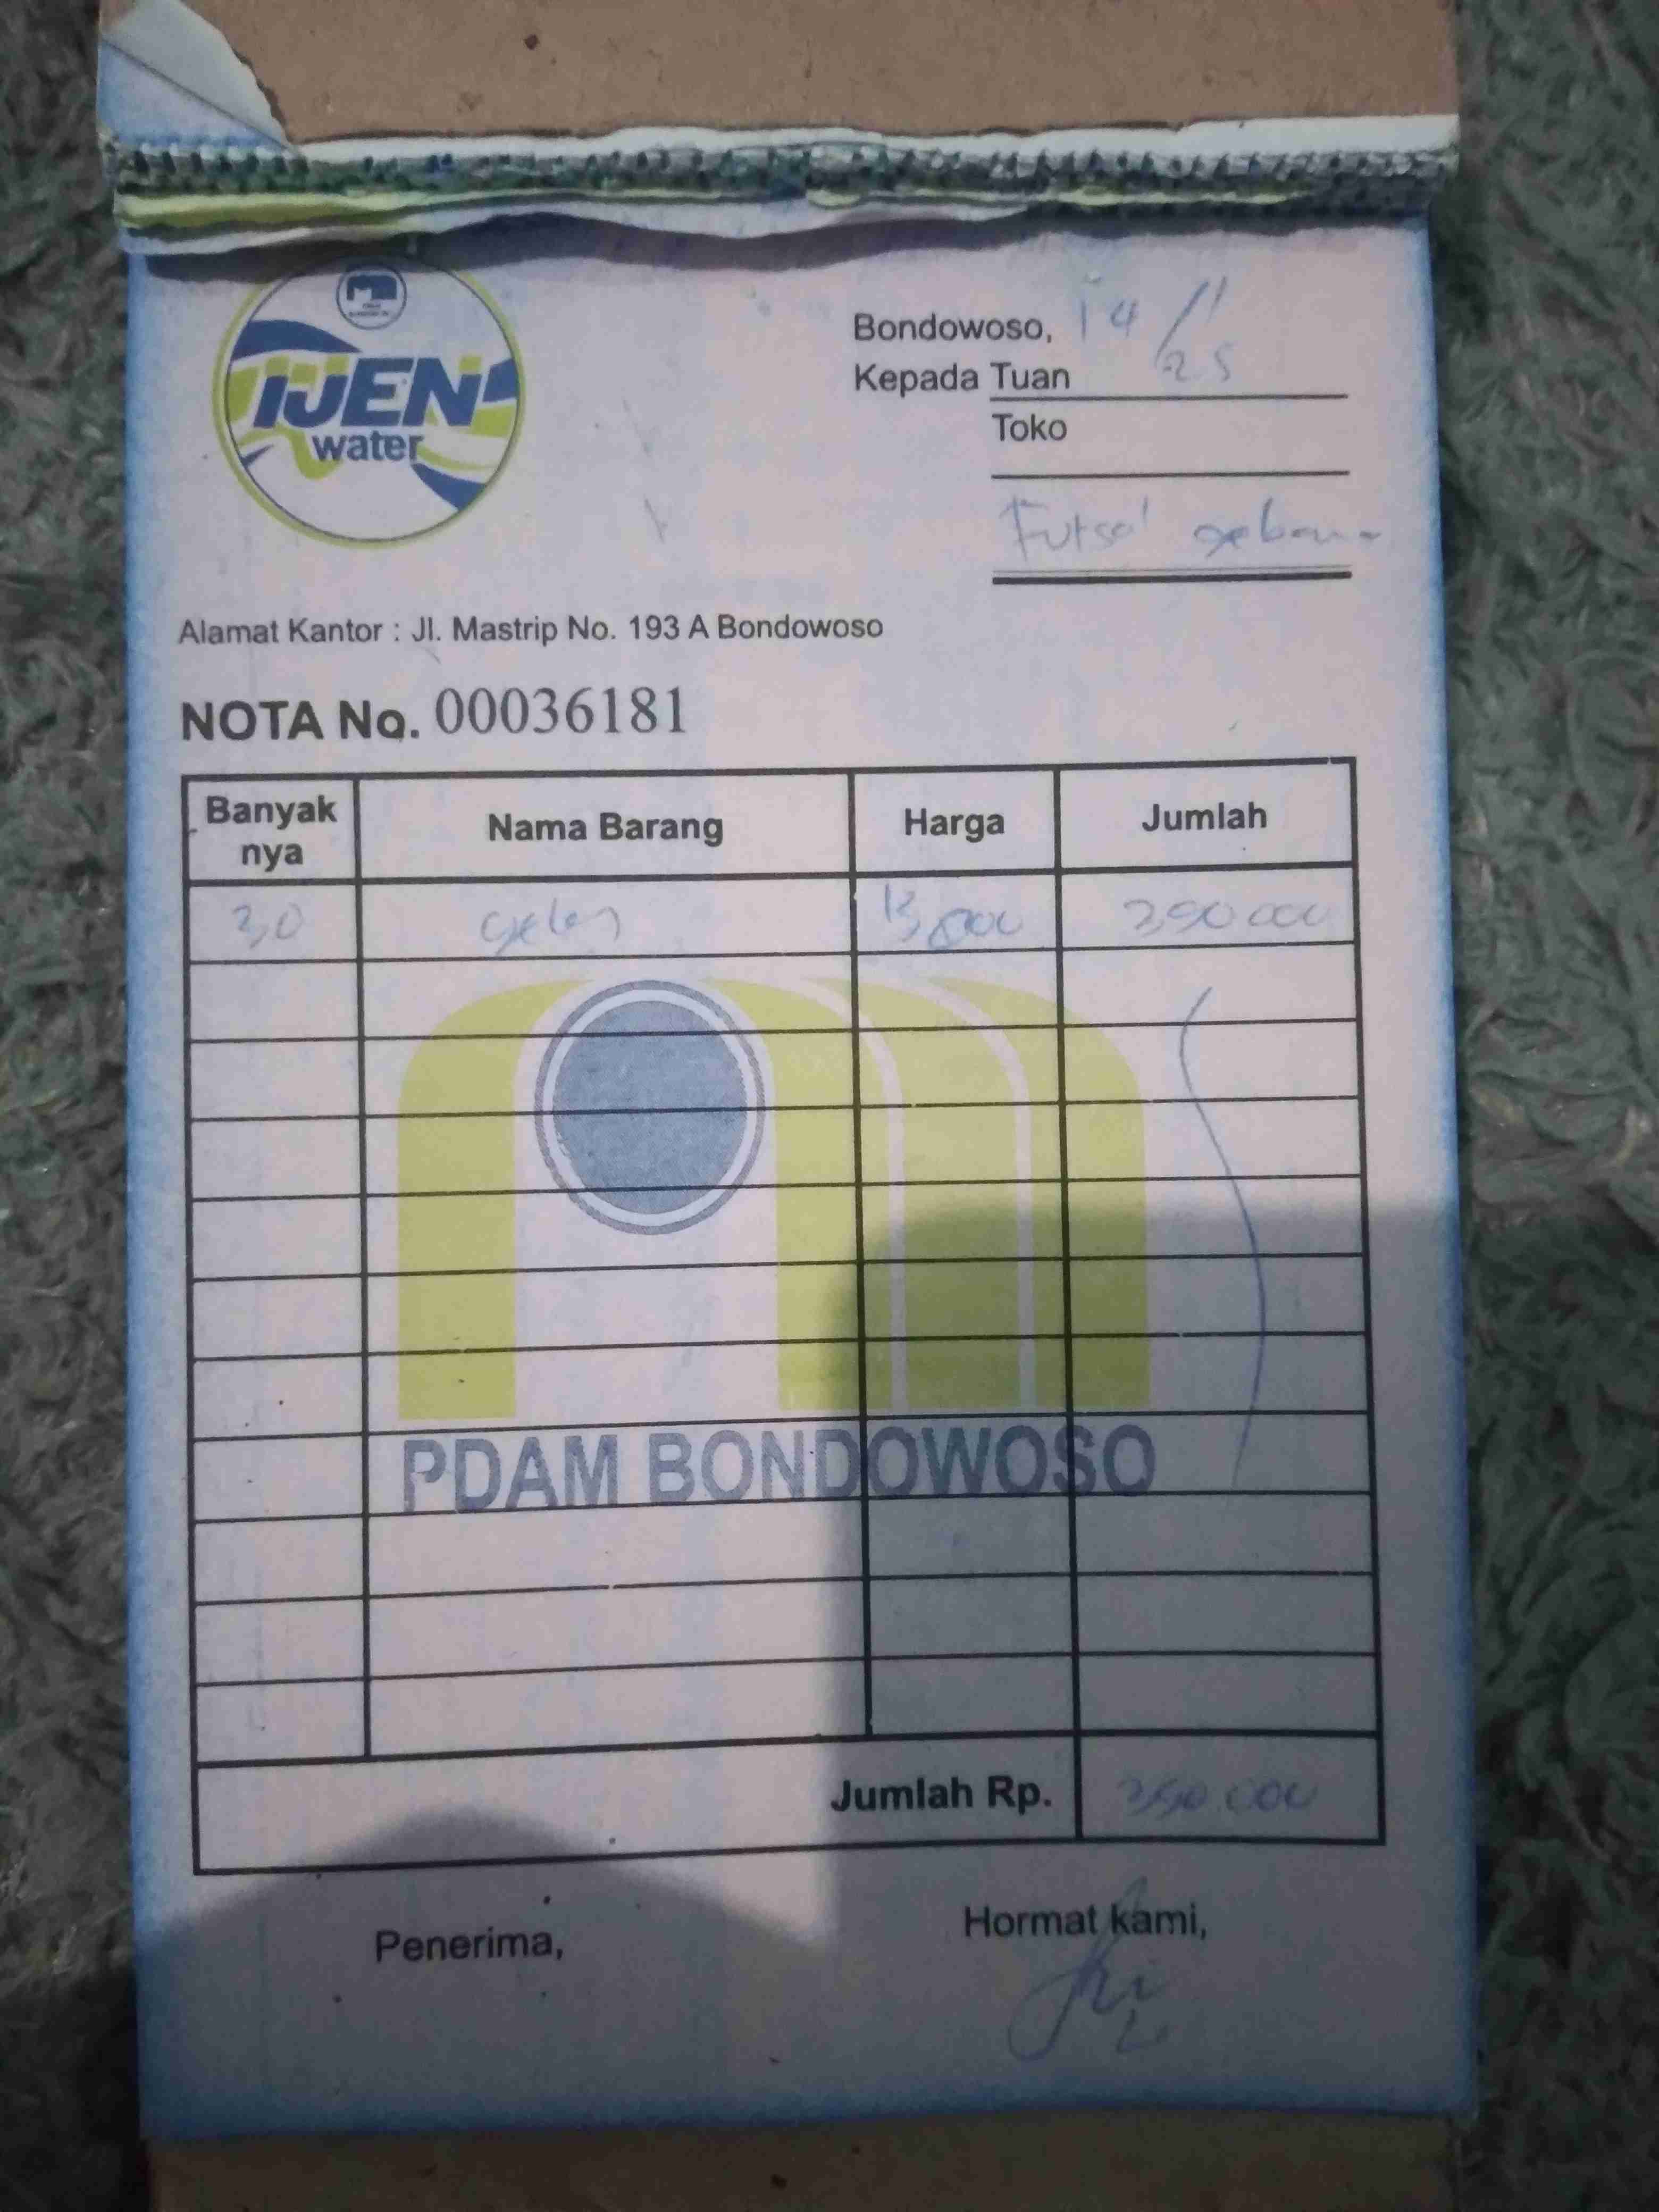 IJEN
water
Bondowoso, 14/1
25
Kepada Tuan
Toko
Futsal
Alamat Kantor : Jl. Mastrip No. 193 A Bondowoso
NOTA No. 00036181
Banyak nya Nama Barang Harga Jumlah
30 gelas 13,000 390 000
PDAM BONDOWOSO
Jumlah Rp. 390.000
Penerima, Hormat kami,